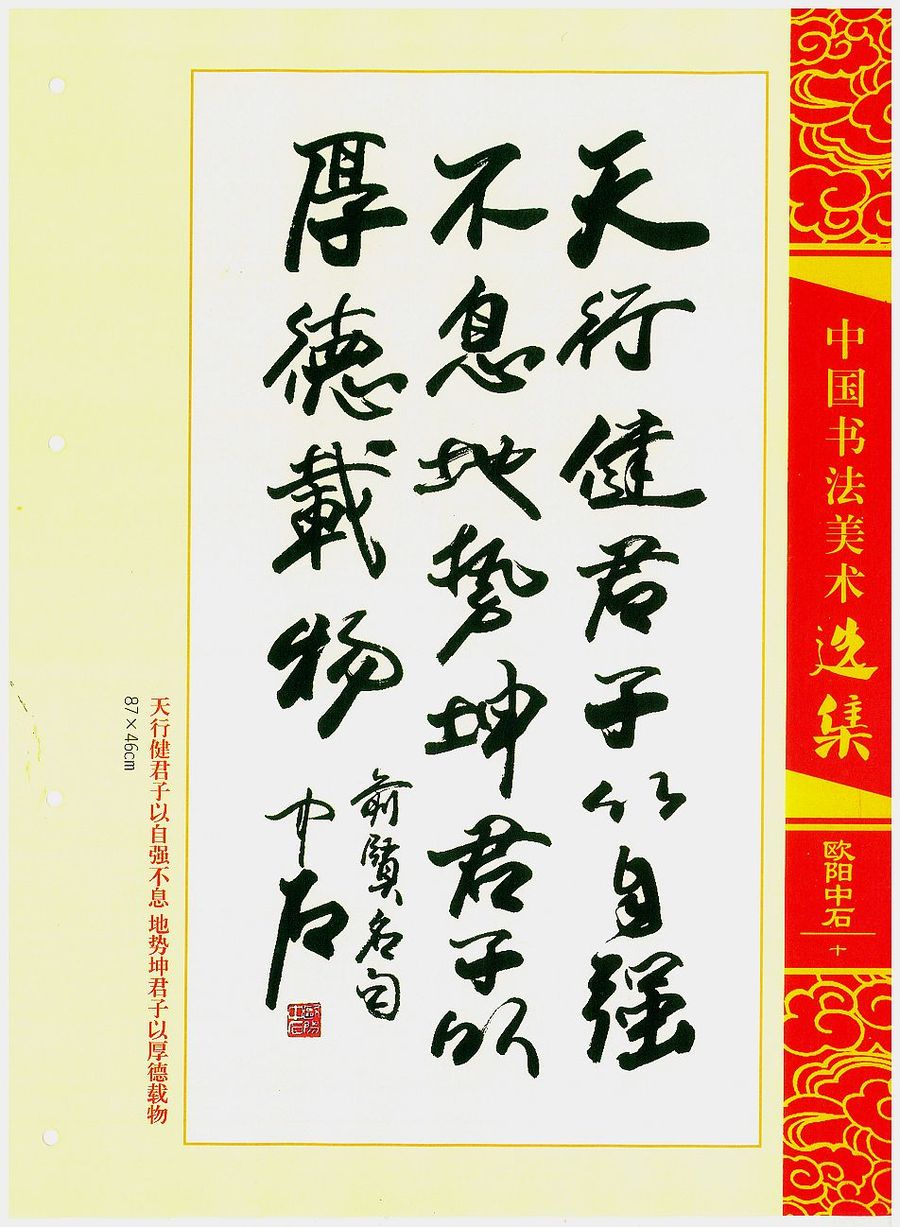 天行健君子以自强
不息地势坤君子以
厚德載物
前賢名句
中石
中国书法美术选集
欧阳中石
十
天行健君子以自强不息 地势坤君子以厚德载物
87×46cm